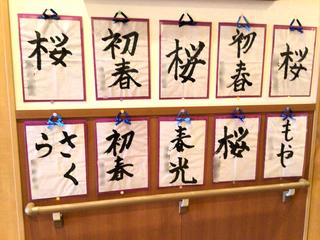 桜
初春
桜
初春
桜
さく
ら
初春
春光
桜
もや